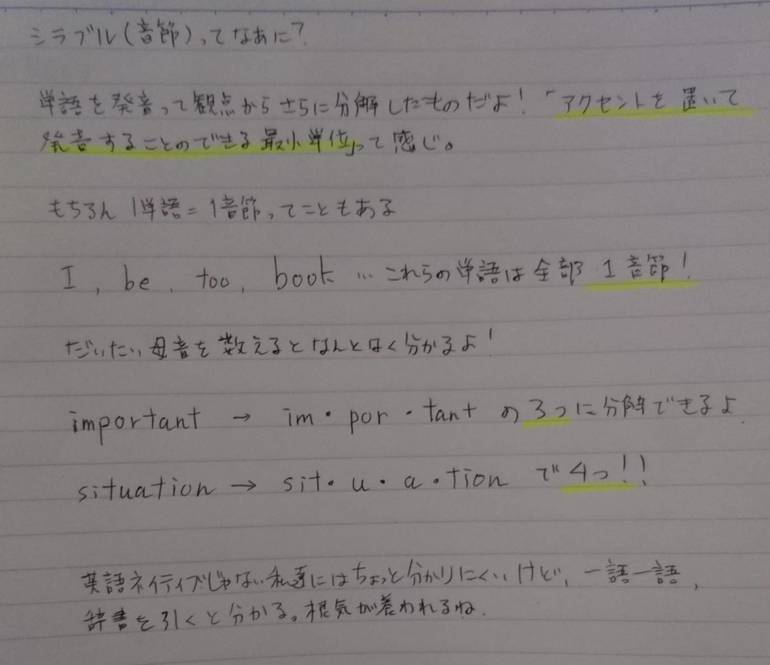 シラブル(音節)ってなあに?
単語を発音って観点からさらに分解したものだよ!「アクセントを置いて
発音することのできる最小単位」って感じ。
もちろん1単語=1音節ってこともある
I, be, too, book … これらの単語は全部1音節!
だいたい母音を数えるとなんとなく分かるよ!
important → im・por・tant の3つに分解できるよ
situation → sit・u・a・tion で4つ!!
英語ネイティブじゃない私達にはちょっと分かりにくいけど、一語一語、
辞書を引くと分かる。根気が養われるね.